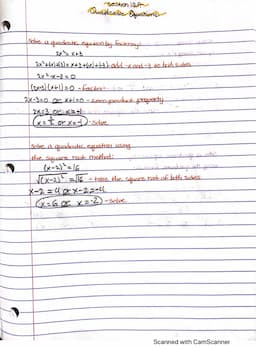 Section 1.2A
Quadratic Equations
Solve a quadratic equation by factoring:
2x² = x+3
2x²+(-x)+(-3) = x+3+(-x)+(-3) - add -x and -3 to both sides
2x²-x-3=0
(2x-3)(x+1)=0 - factor
2x-3=0 or x+1=0 - zero-product property
2x=3 or x=-1
x= or x=-1 - solve
Solve a quadratic equation using
the square root method:
(x-2)²=16
√(x-2)² = √16 - take the square root of both sides
x-2=4 or x-2=-4
x=6 or x=-2 - solve
Scanned with CamScanner